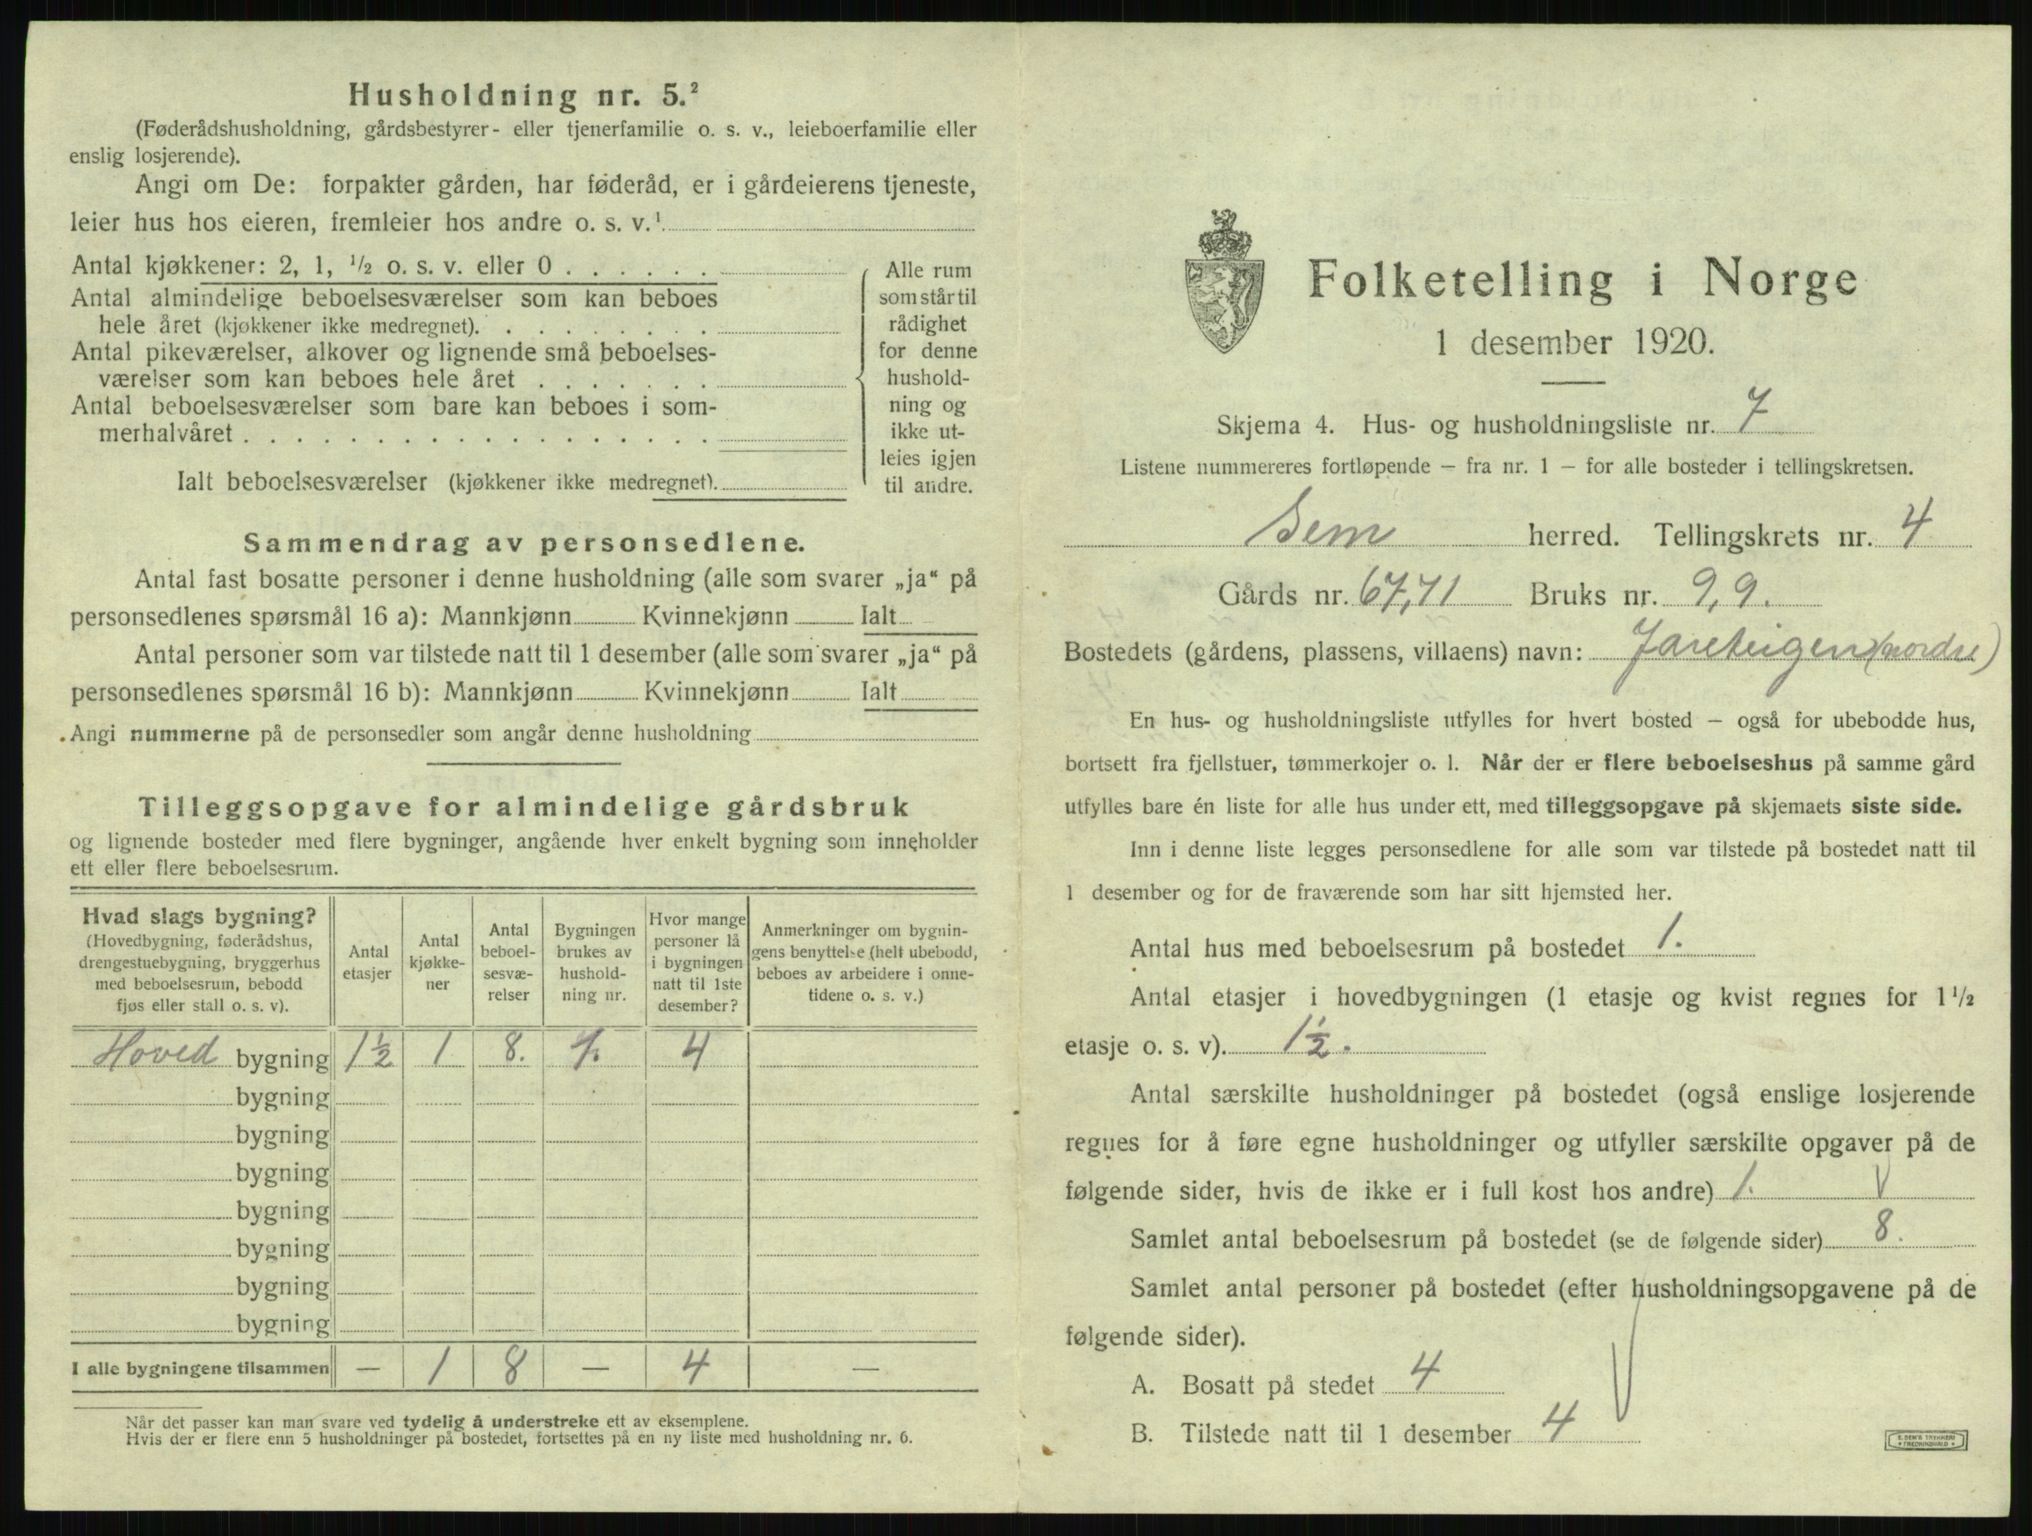 Husholdning nr. 5.²
(Føderådshusholdning, gårdsbestyrer- eller tjenerfamilie o. s. v., leieboerfamilie eller
enslig losjerende).
Angi om De: forpakter gården, har føderåd, er i gårdeierens tjeneste,
leier hus hos eieren, fremleier hos andre o. s. v.¹
Antal kjøkkener: 2, 1, ½ o. s. v. eller 0 . . . . . .
Antal almindelige beboelsesværelser som kan beboes
hele året (kjøkkener ikke medregnet). . . . . . . . .
Antal pikeværelser, alkover og lignende små beboelses-
værelser som kan beboes hele året . . . . . . .
Antal beboelsesværelser som bare kan beboes i som-
merhalvåret . . . . . . . . . . . . . . . . . .
Ialt beboelsesværelser (kjøkkener ikke medregnet).
Alle rum
som står til
rådighet
for denne
hushold-
ning og
ikke ut-
leies igjen
til andre.
Sammendrag av personsedlene.
Antal fast bosatte personer i denne husholdning (alle som svarer „ja“ på
personsedlenes spørsmål 16 a): Mannkjønn Kvinnekjønn Ialt
Antal personer som var tilstede natt til 1 desember (alle som svarer „ja“ på
personsedlenes spørsmål 16 b): Mannkjønn Kvinnekjønn Ialt
Angi nummerne på de personsedler som angår denne husholdning
Tilleggsopgave for almindelige gårdsbruk
og lignende bosteder med flere bygninger, angående hver enkelt bygning som inneholder
ett eller flere beboelsesrum.
Hvad slags bygning?
(Hovedbygning, føderådshus,
drengestuebygning, bryggerhus
med beboelsesrum, bebodd
fjøs eller stall o. s. v).
Antal
etasjer
Antal
kjøkke-
ner
Antal
beboel-
sesvæ-
relser
Bygningen
brukes av
hushold-
ning nr.
Hvor mange
personer lå
i bygningen
natt til 1ste
desember?
Anmerkninger om bygnin-
gens benyttelse (helt ubebodd,
beboes av arbeidere i onne-
tidene o. s. v.)
Hoved bygning 1½ 1 8. 1. 4
bygning
bygning
bygning
bygning
bygning
bygning
bygning
I alle bygningene tilsammen — 1 8 — 4 —
Når det passer kan man svare ved tydelig å understreke ett av eksemplene.
Hvis der er flere enn 5 husholdninger på bostedet, fortsettes på en ny liste med husholdning nr. 6.
Folketelling i Norge
1 desember 1920.
Skjema 4. Hus- og husholdningsliste nr. 7
Listene nummereres fortløpende – fra nr. 1 – for alle bosteder i tellingskretsen.
Sem herred. Tellingskrets nr. 4
Gårds nr. 67,71 Bruks nr. 9,9.
Bostedets (gårdens, plassens, villaens) navn: Jareteigen (nordre)
En hus- og husholdningsliste utfylles for hvert bosted – også for ubebodde hus,
bortsett fra fjellstuer, tømmerkojer o. l. Når der er flere beboelseshus på samme gård
utfylles bare én liste for alle hus under ett, med tilleggsopgave på skjemaets siste side.
Inn i denne liste legges personsedlene for alle som var tilstede på bostedet natt til
1 desember og for de fraværende som har sitt hjemsted her.
Antal hus med beboelsesrum på bostedet 1.
Antal etasjer i hovedbygningen (1 etasje og kvist regnes for 1½
etasje o. s. v). 1½.
Antal særskilte husholdninger på bostedet (også enslige losjerende
regnes for å føre egne husholdninger og utfyller særskilte opgaver på de
følgende sider, hvis de ikke er i full kost hos andre) 1.
Samlet antal beboelsesrum på bostedet (se de følgende sider) 8.
Samlet antal personer på bostedet (efter husholdningsopgavene på de
følgende sider).
A. Bosatt på stedet 4
B. Tilstede natt til 1 desember 4
E. SEM'S TRYKKERI
FREDRIKSHALD